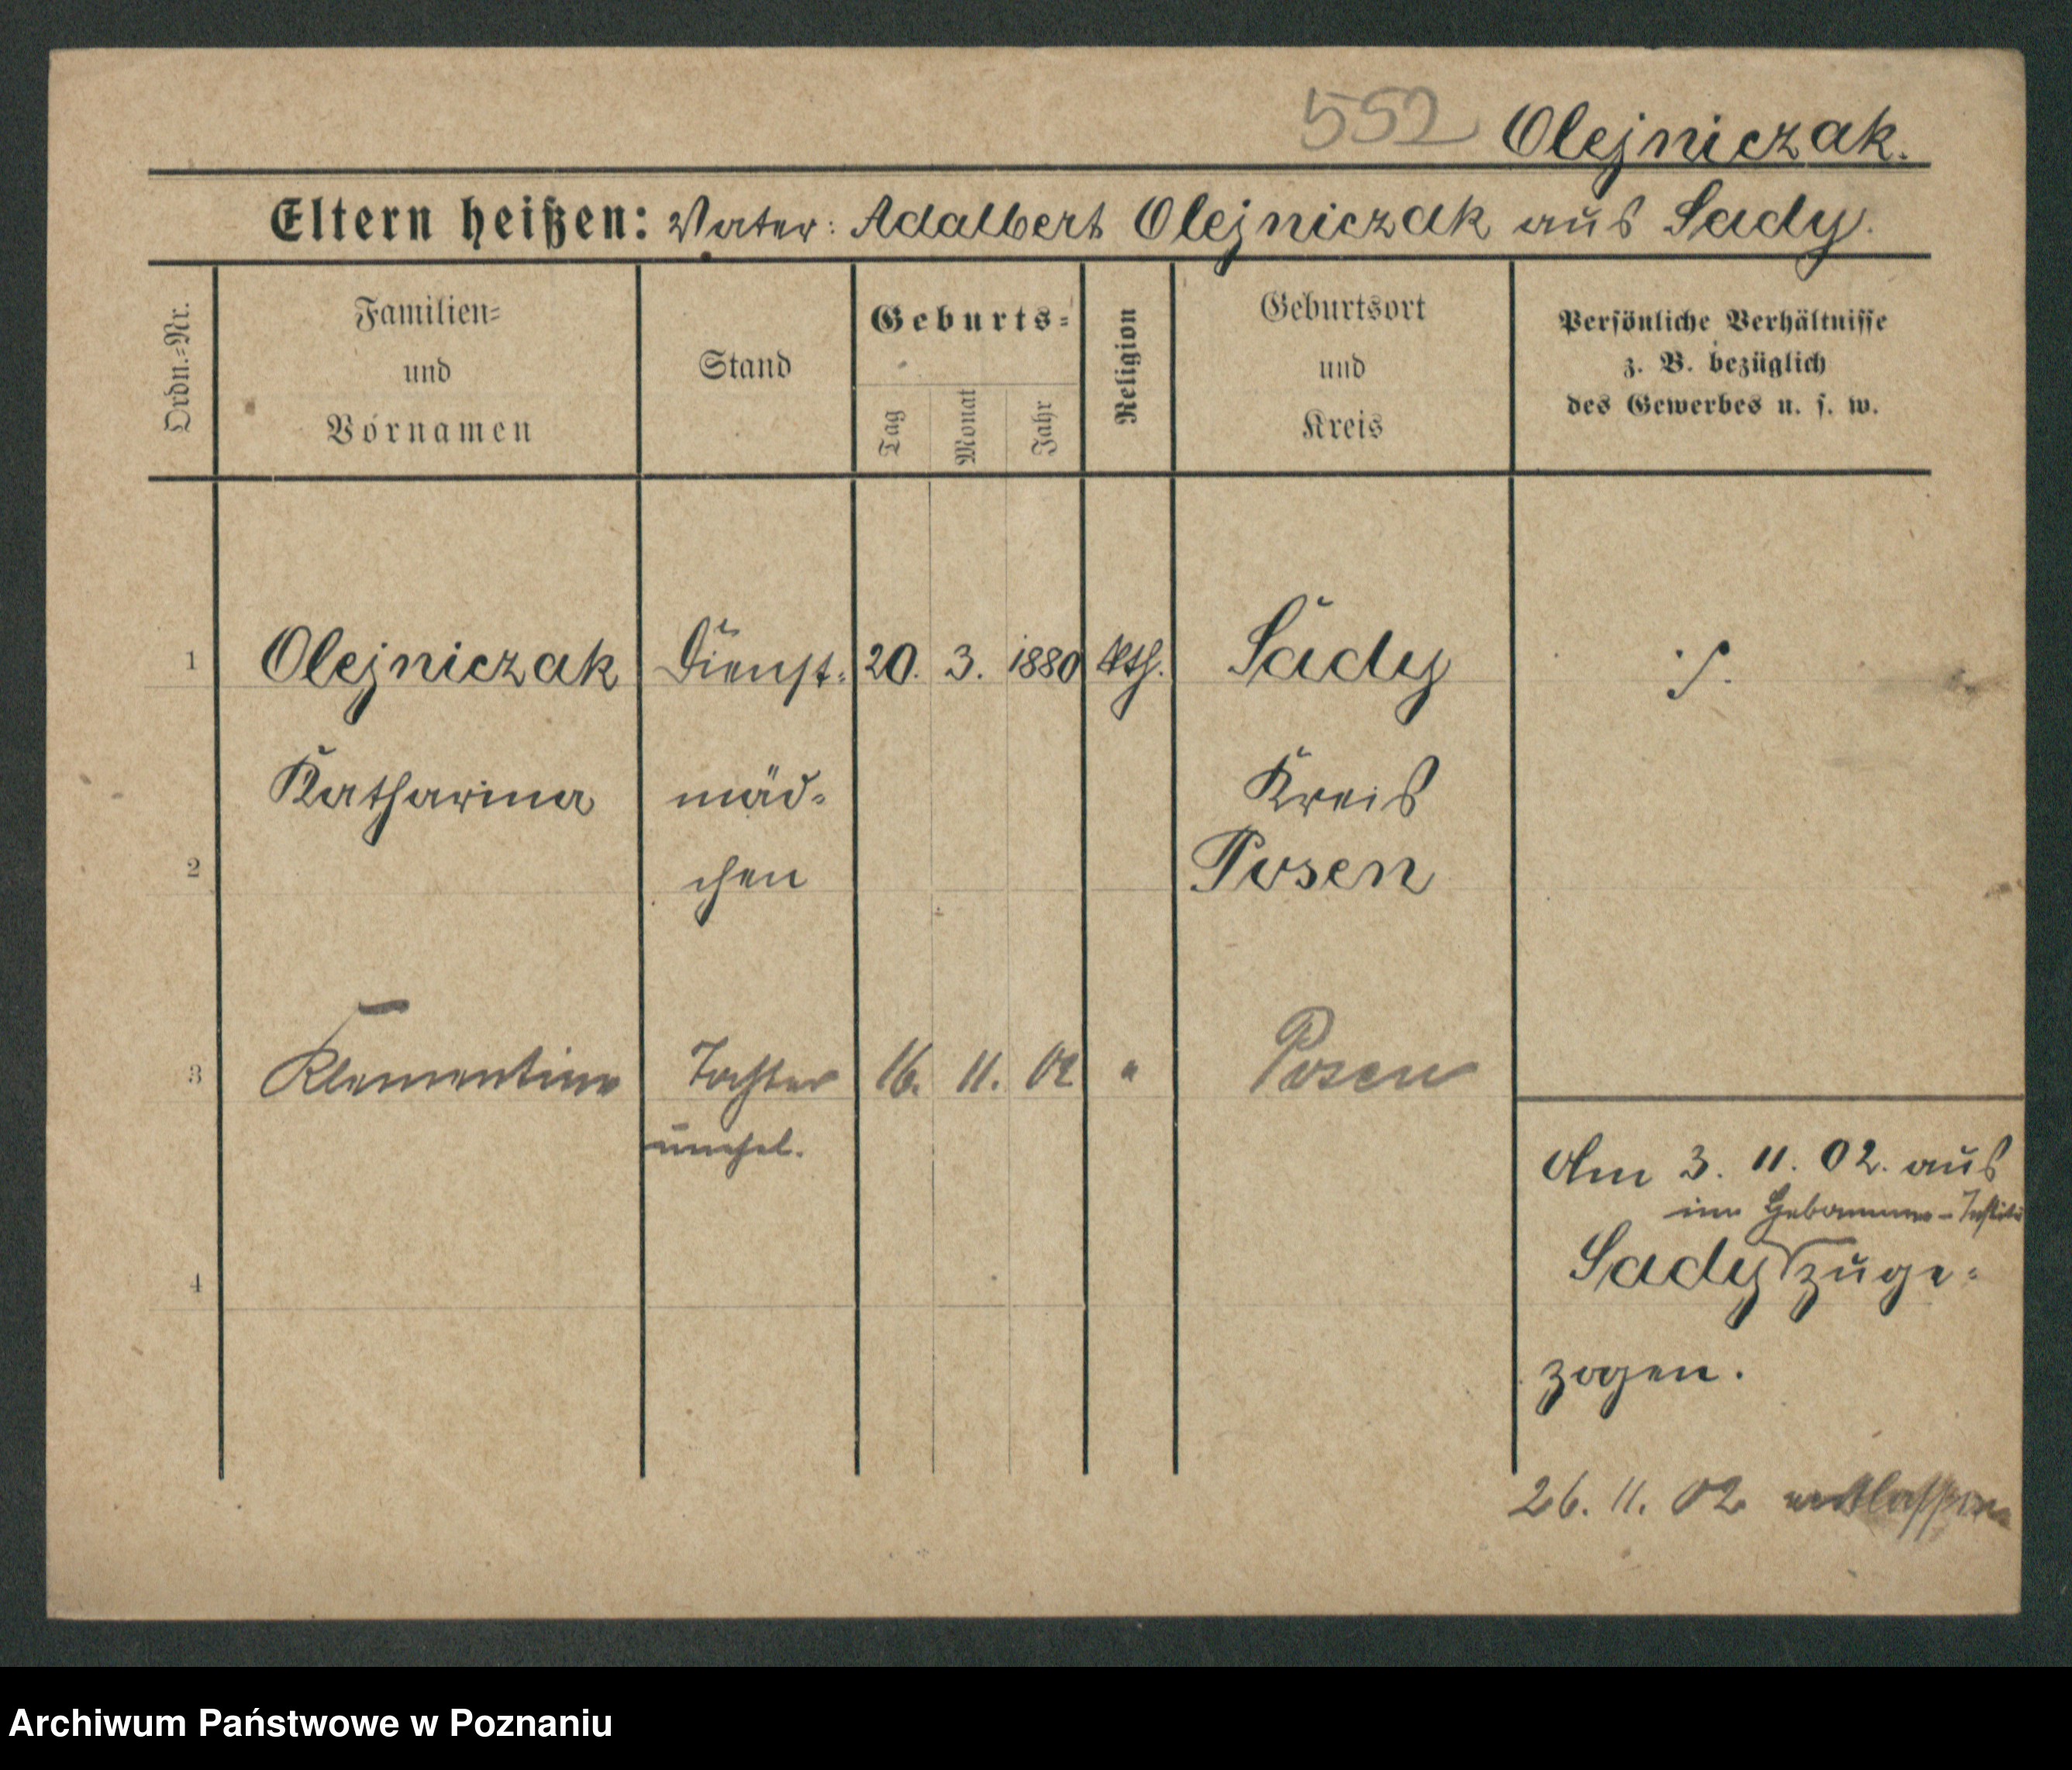 552 Olejniczak.
Eltern heißen: Vater: Adalbert Olejniczak aus Sady.
Ordn.=Nr.
Familien=
und
Vornamen
Stand
Geburts=
Tag
Monat
Jahr
Religion
Geburtsort
und
Kreis
Persönliche Verhältnisse
z. B. bezüglich
des Gewerbes u. s. w.
1 Olejniczak Dienst= 20. 3. 1880 kth. Sady
Katharina mäd= Kreis
2 chen Posen
3 Klementine Tochter 16. 11. 02 " Posen
unehel.
Am 3. 11. 02. aus
im Hebammen-Institu
4 Sady zuge=
zogen.
26. 11. 02 entlassen
Archiwum Państwowe w Poznaniu